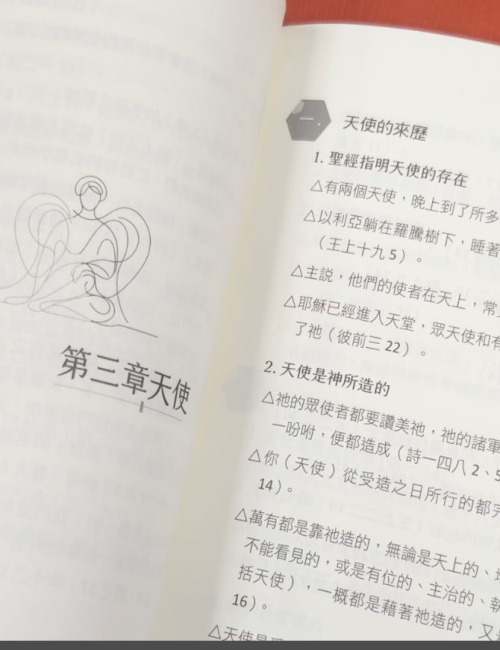 第三章天使
一.
天使的來歷
1. 聖經指明天使的存在
△有兩個天使，晚上到了所多
△以利亞躺在羅騰樹下，睡著
（王上十九 5）。
△主說，他們的使者在天上，常
△耶穌已經進入天堂，眾天使和有
了祂（彼前三 22）。
2. 天使是神所造的
△祂的眾使者都要讚美祂，祂的諸軍
一吩咐，便都造成（詩一四八 2、5
△你（天使）從受造之日所行的都完
14）。
△萬有都是靠祂造的，無論是天上的、
不能看見的，或是有位的、主治的、執
括天使），一概都是藉著祂造的，又
16）。
△天使是